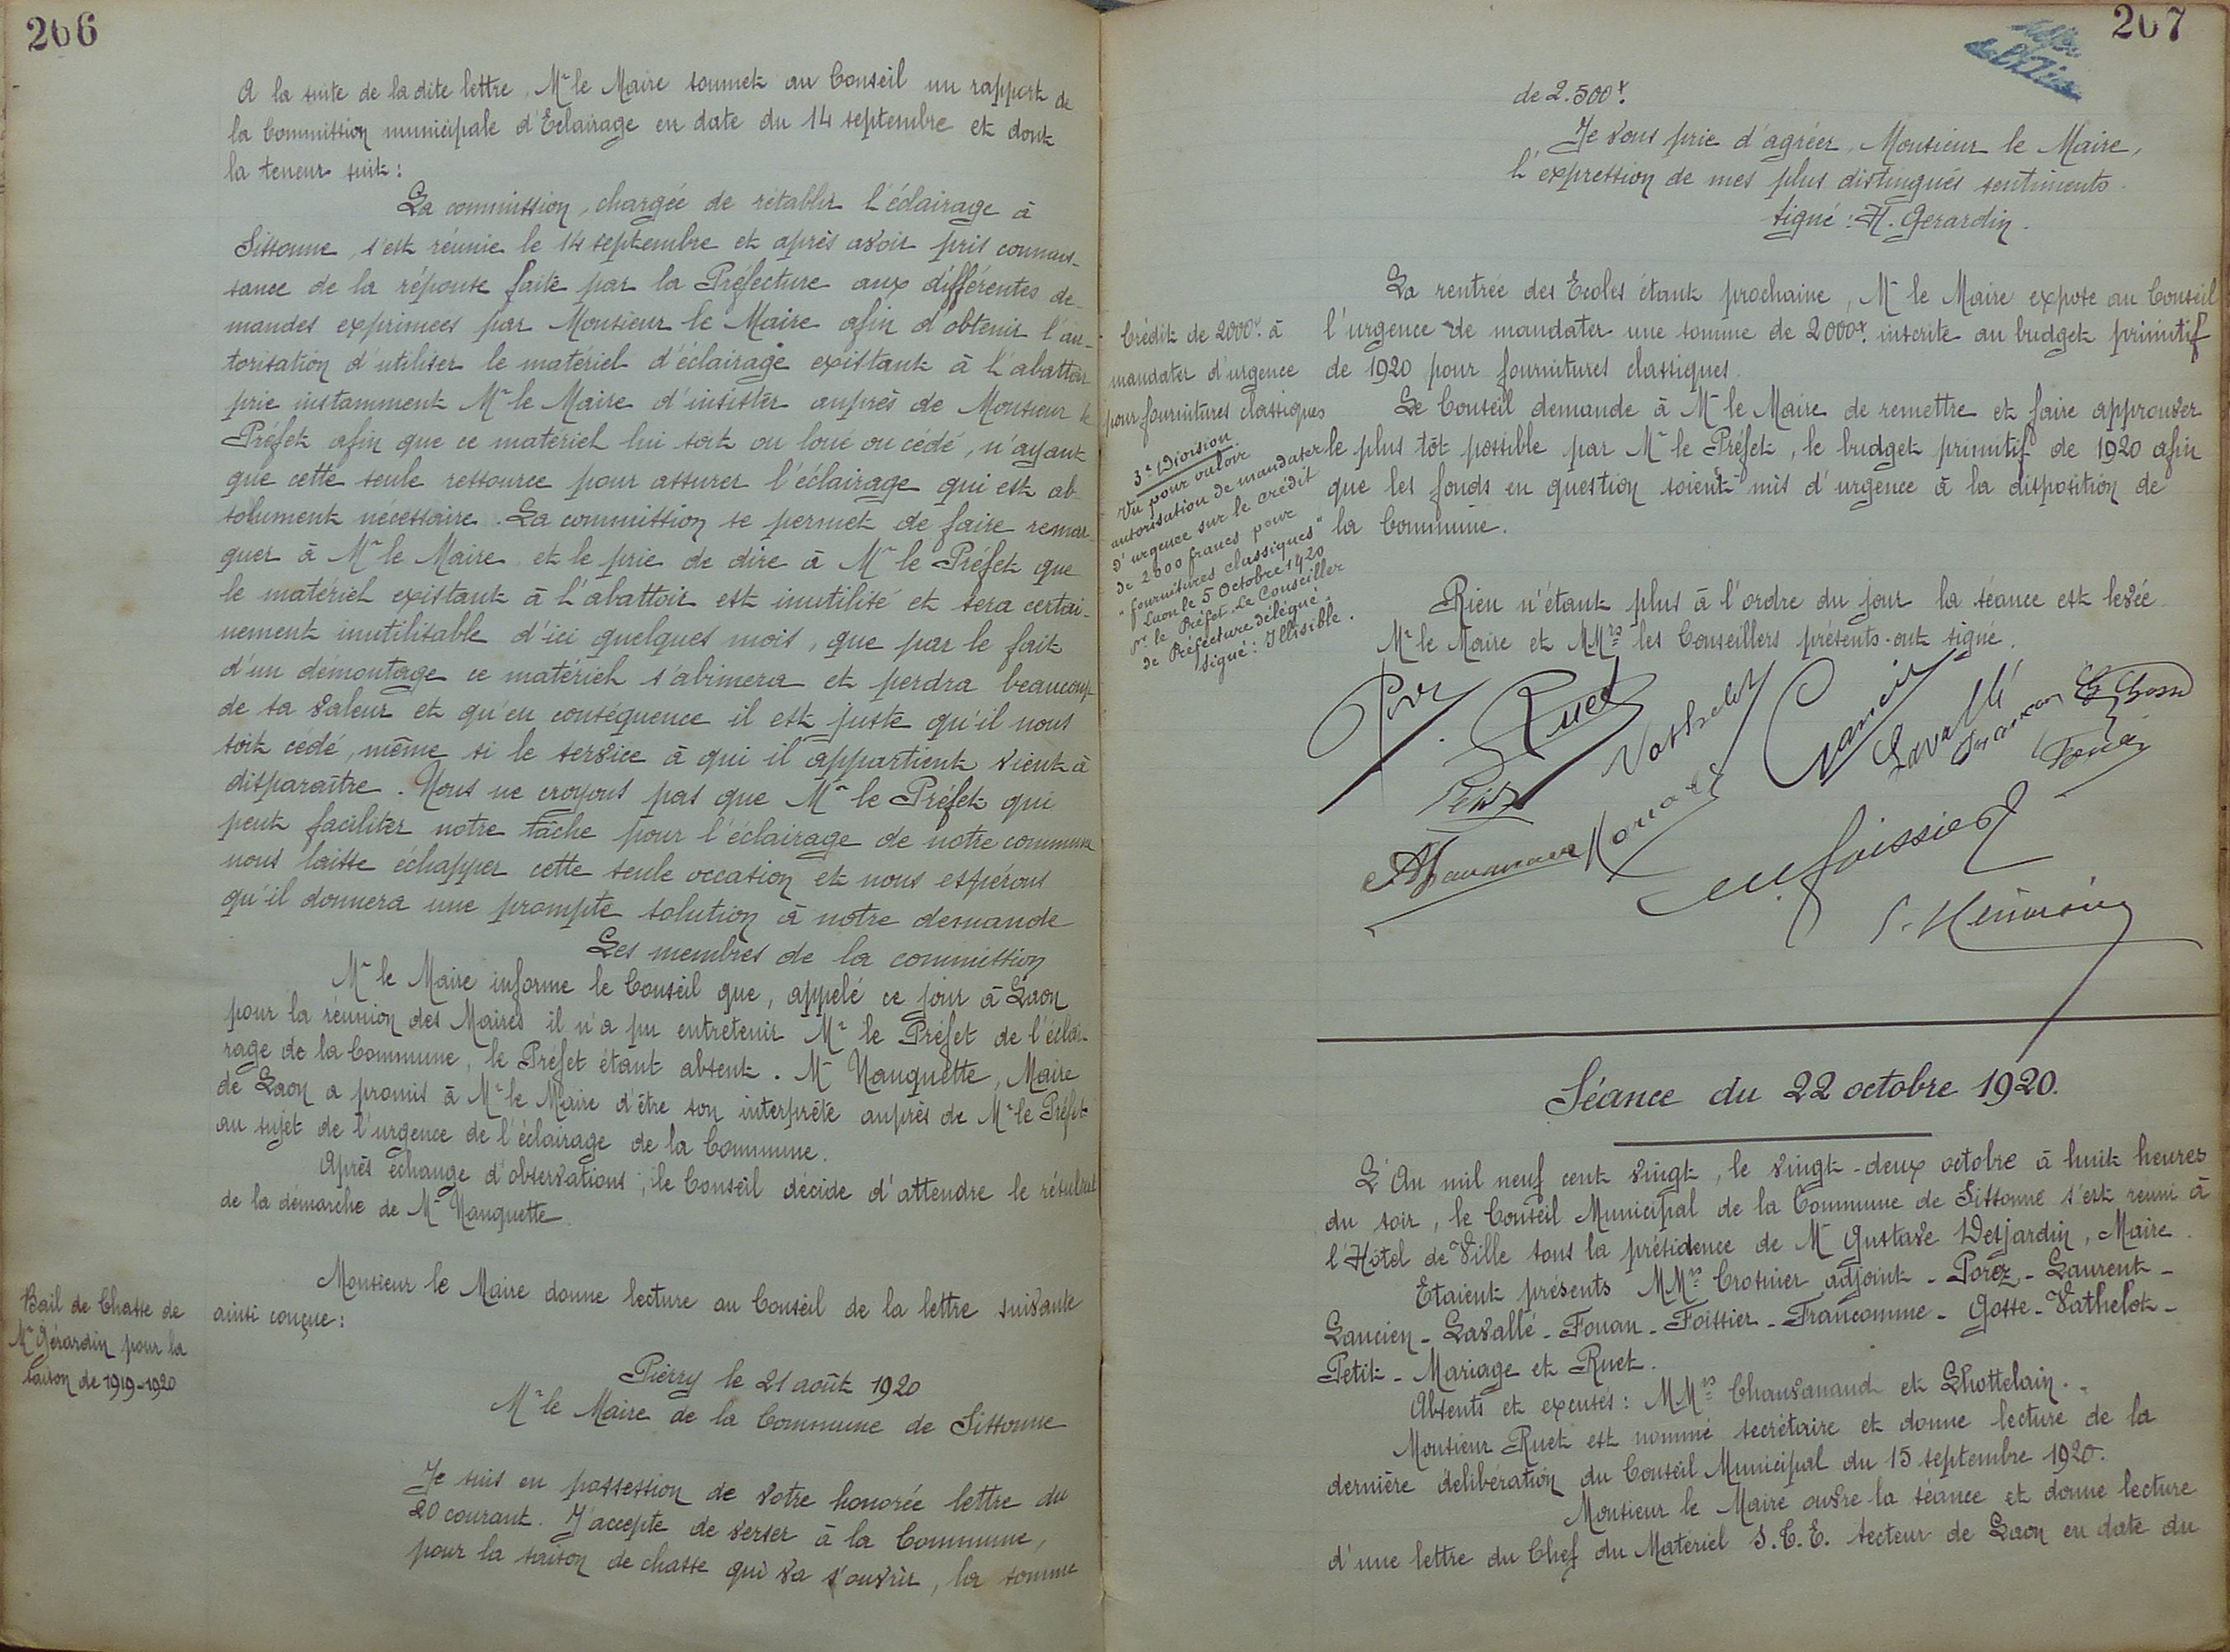 266
A la suite de la dite lettre, Mr le Maire soumet au Conseil un rapport de
la Commission municipale d'Eclairage en date du 14 septembre et dont
la teneur suit :
La commission, chargée de rétablir l'éclairage à
Sissonne, s'est réunie le 14 septembre et après avoir pris connais-
sance de la réponse faite par la Préfecture aux différentes de-
mandes exprimées par Monsieur le Maire afin d'obtenir l'au-
torisation d'utiliser le matériel d'éclairage existant à l'abattoir
prie instamment Mr le Maire d'insister auprès de Monsieur le
Préfet afin que ce matériel lui soit ou loué ou cédé, n'ayant
que cette seule ressource pour assurer l'éclairage qui est ab-
solument nécessaire. La commission se permet de faire remar-
quer à Mr le Maire et le prie de dire à Mr le Préfet que
le matériel existant à l'abattoir est inutilisé et sera certai-
nement inutilisable d'ici quelques mois, que par le fait
d'un démontage ce matériel s'abimera et perdra beaucoup
de sa valeur et qu'en conséquence il est juste qu'il nous
soit cédé, même si le service à qui il appartient vient à
disparaître. Nous ne croyons pas que Mr le Préfet qui
peut faciliter notre tâche pour l'éclairage de notre commune
nous laisse échapper cette seule occasion et nous espérons
qu'il donnera une prompte solution à notre demande
Les membres de la commission
Mr le Maire informe le Conseil que, appelé ce jour à Laon
pour la réunion des Maires il n'a pu entretenir Mr le Préfet de l'éclai-
rage de la Commune, le Préfet étant absent. Mr Nanquette, Maire
de Laon a promis à Mr le Maire d'être son interprête auprès de Mr le Préfet
au sujet de l'urgence de l'éclairage de la Commune.
Après échange d'observations, le Conseil décide d'attendre le résultat
de la démarche de Mr Nanquette.
Bail de Chasse de
Mr Gérardin pour la
saison de 1919-1920
Monsieur le Maire donne lecture au Conseil de la lettre suivante
ainsi conçue :
Pierry le 21 août 1920
Mr le Maire de la Commune de Sissonne
Je suis en possession de votre honorée lettre du
20 courant. J'accepte de verser à la Commune,
pour la saison de chasse qui va s'ouvrir, la somme
267
de 2.500f.
Je vous prie d'agréer, Monsieur le Maire,
l'expression de mes plus distingués sentiments.
signé : H. Gerardin.
Crédit de 2000f. à
mandater d'urgence
pour fournitures classiques
La rentrée des Ecoles étant prochaine, Mr le Maire expose au Conseil
l'urgence de mandater une somme de 2000f. inscrite au budget primitif
de 1920 pour fournitures classiques.
Le Conseil demande à Mr le Maire de remettre et faire approuver
le plus tôt possible par Mr le Préfet, le budget primitif de 1920 afin
que les fonds en question soient mis d'urgence à la disposition de
la Commune.
3e Division
Vu pour valoir
autorisation de mandater
d'urgence sur le crédit
de 2000 francs pour
"fournitures classiques"
Laon le 5 Octobre 1920
Pr le Préfet Le Conseiller
de Préfecture délégué.
signé : Illisible.
Rien n'étant plus à l'ordre du jour la séance est levée
Mr le Maire et MMrs les Conseillers présents ont signé.
Ruet
Vathelot
Lancien
Lavallé
Petit
Foissier
Séance du 22 octobre 1920.
L'An mil neuf cent vingt, le vingt-deux octobre à huit heures
du soir, le Conseil Municipal de la Commune de Sissonne s'est réuni à
l'Hôtel de Ville sous la présidence de Mr Gustave Desjardin, Maire.
Etaient présents MMrs Crosnier adjoint - Porez - Laurent -
Lancien - Lavallé - Fouan - Foissier - Francomme - Gosse - Vathelot -
Petit - Mariage et Ruet.
Absents et excusés : MMrs Chauvanaud et Lhottelain.
Monsieur Ruet est nommé secrétaire et donne lecture de la
dernière délibération du Conseil Municipal du 15 septembre 1920.
Monsieur le Maire ouvre la séance et donne lecture
d'une lettre du Chef du Matériel S.T.E. secteur de Laon en date du